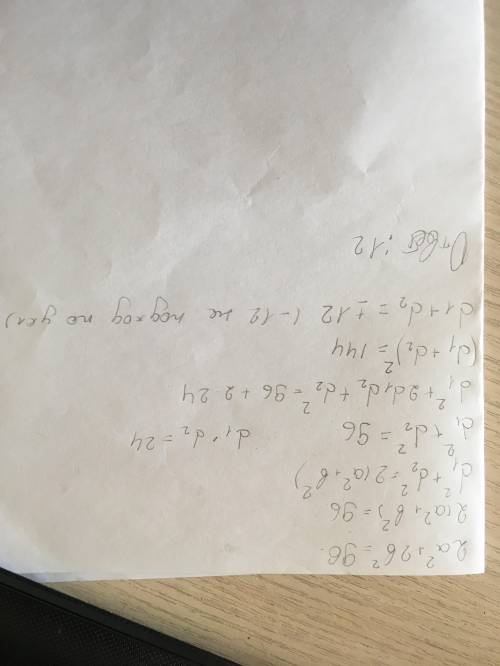 2a² + 2b² = 96.
2(a² + b²) = 96
d₁² + d₂² = 2(a² + b²)
d₁² + d₂² = 96 d₁ · d₂ = 24
d₁² + 2d₁d₂ + d₂² = 96 + 2·24
(d₁ + d₂)² = 144
d1 + d₂ = ± 12 (-12 не подход по усл)
Ответ: 12